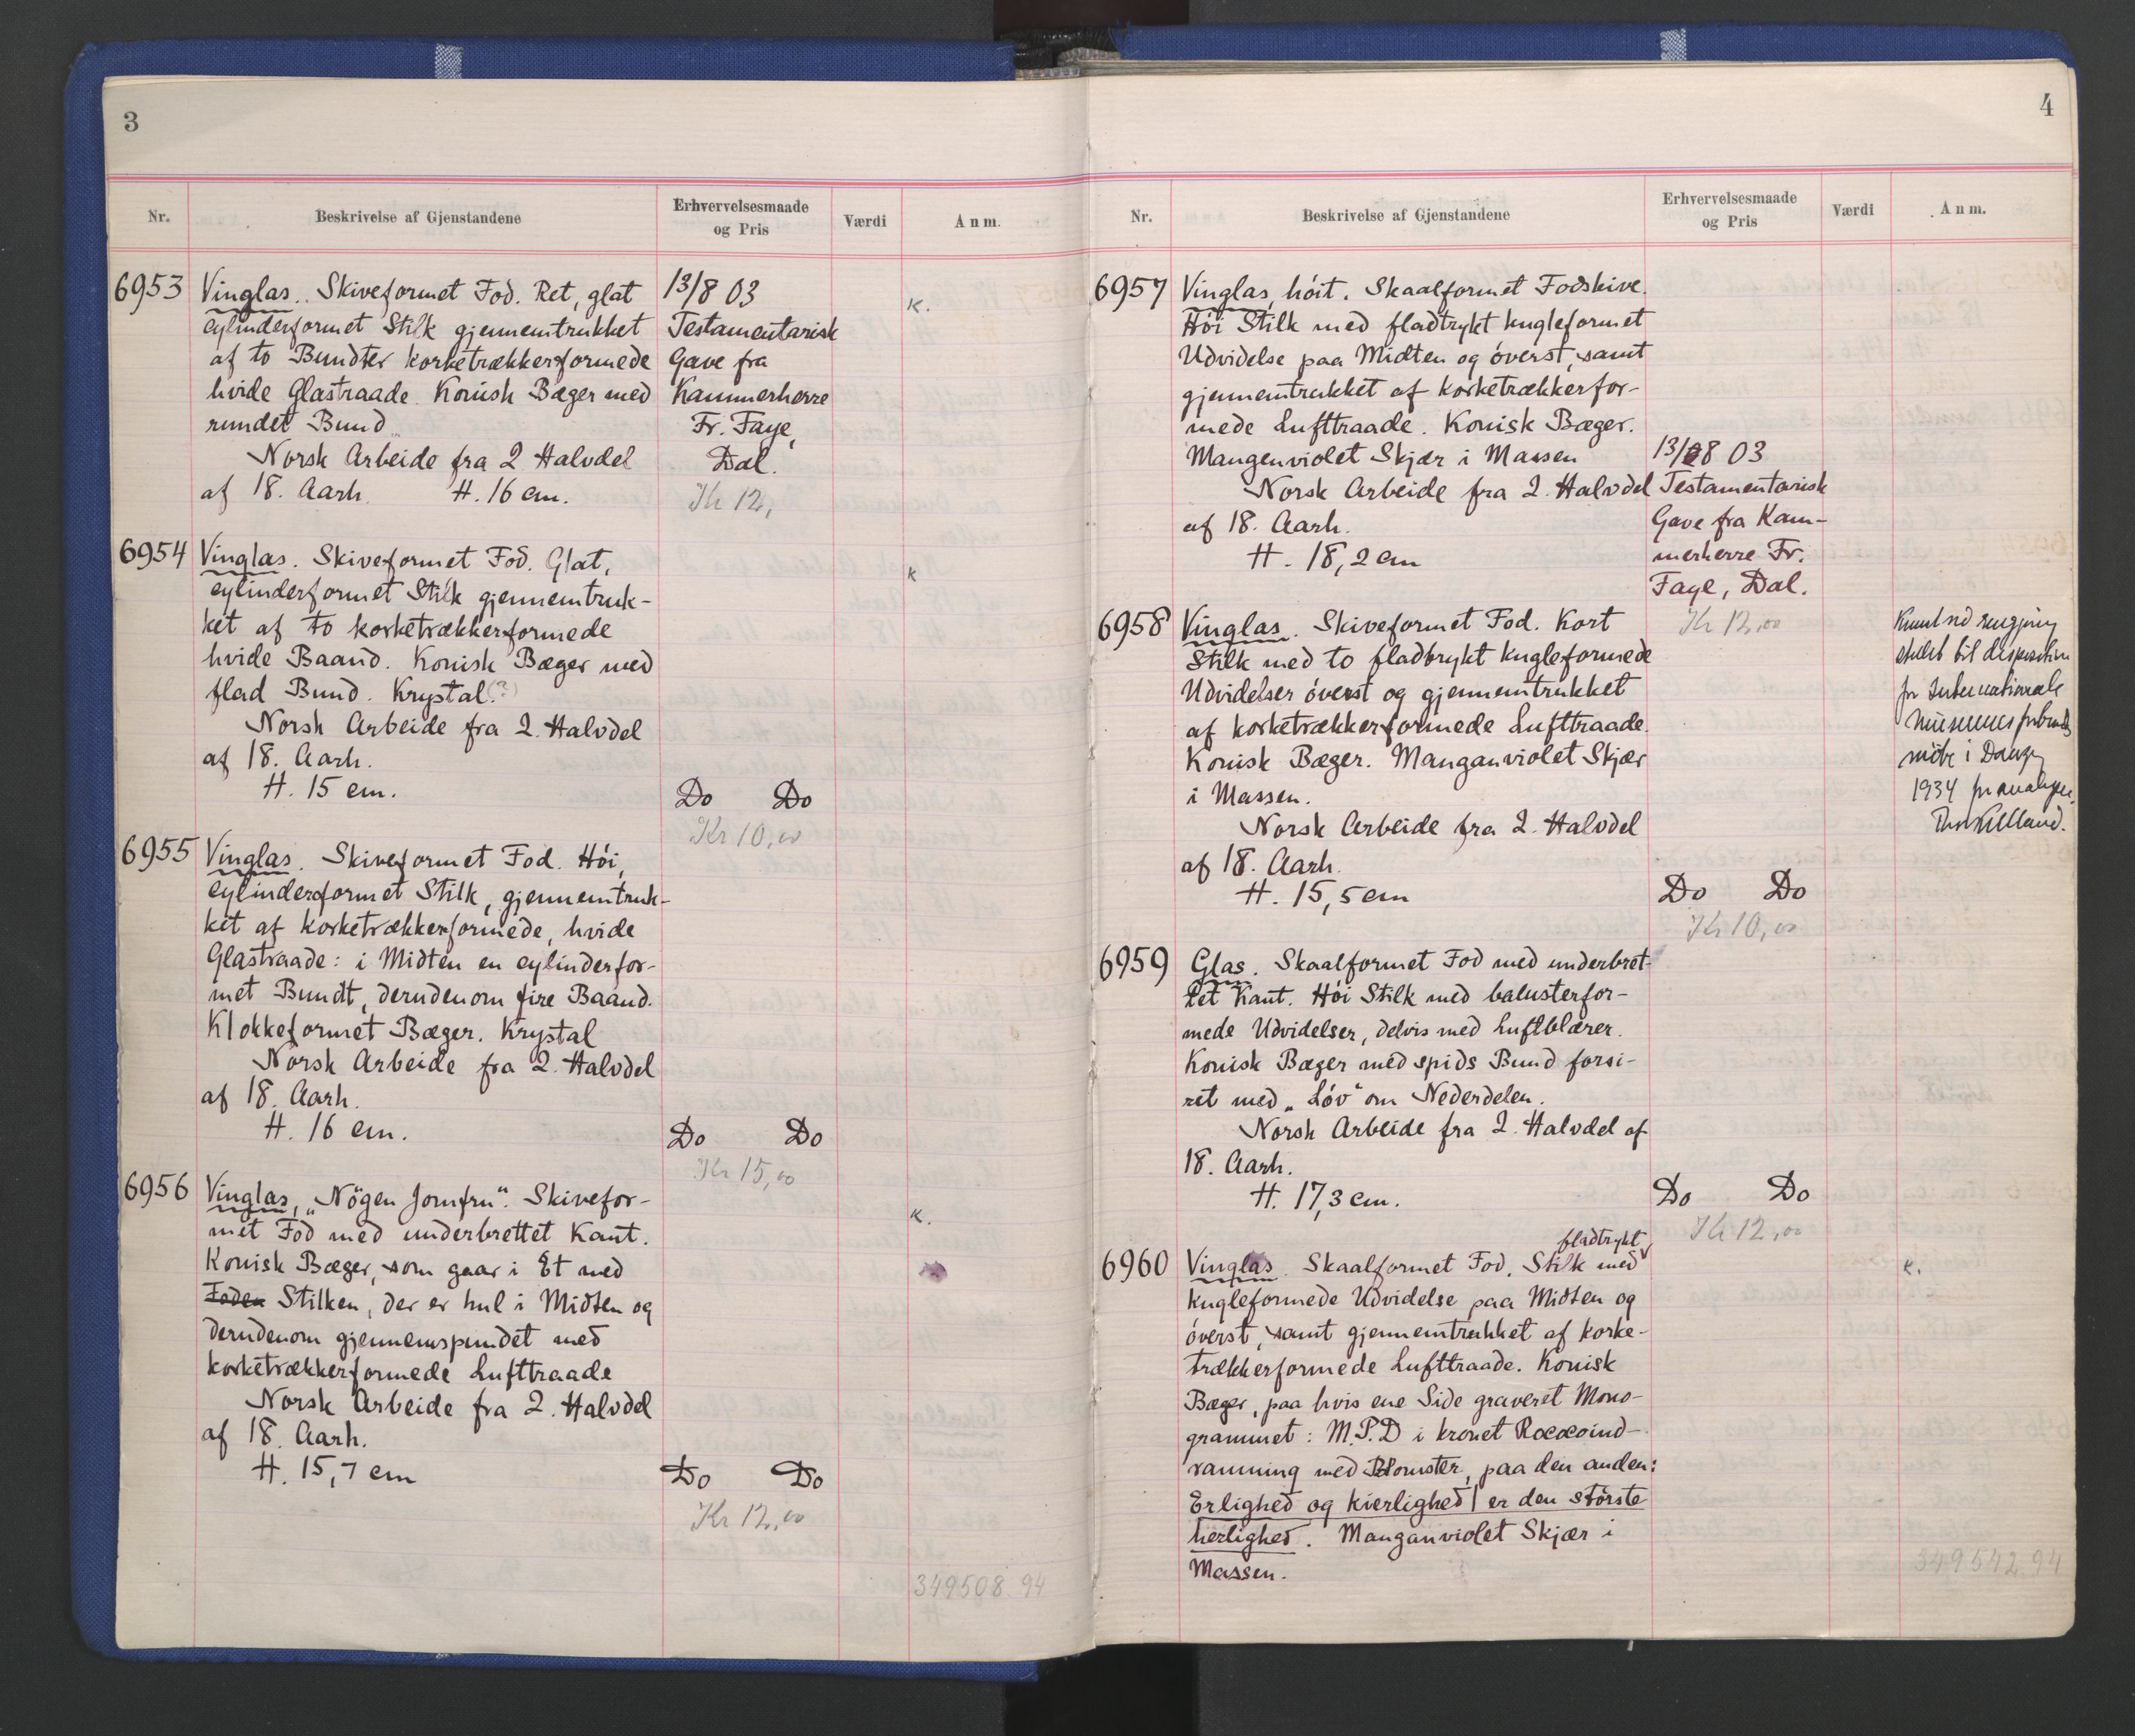 3
Nr.
Beskrivelse af Gjenstandene
Erhvervelsesmaade
og Pris
Værdi
Anm.
6953
Vinglas. Skiveformet Fod. Ret, glat
cylinderformet Stilk gjennemtrukket
af to Bundter korketrækkerformede
hvide Glastraade. Konisk Bæger med
rundet Bund.
Norsk Arbeide fra 2 Halvdel
af 18. Aarh. H. 16 cm.
13/8 03
Testamentarisk
Gave fra
Kammerherre
Fr. Faye,
Dal.
Kr 12,
K.
6954
Vinglas. Skiveformet Fod. Glat,
cylinderformet Stilk gjennemtruk-
ket af to korketrækkerformede
hvide Baand. Konisk Bæger med
flad Bund. Krystal (?)
Norsk Arbeide fra 2. Halvdel
af 18. Aarh.
H. 15 cm.
Do Do
Kr 10,00
K
6955
Vinglas. Skiveformet Fod. Höi,
cylinderformet Stilk, gjennemtruk-
ket af korketrækkerformede, hvide
Glastraade: i Midten en cylinderfor-
met Bundt, derudenom fire Baand.
Klokkeformet Bæger. Krystal
Norsk Arbeide fra 2. Halvdel
af 18. Aarh.
H. 16 cm.
Do Do
Kr 15,00
6956
Vinglas, „Nögen Jomfru". Skivefor-
met Fod med underbrettet Kant.
Konisk Bæger, som gaar i Et med
Foden Stilken, der er hul i Midten og
derudenom gjennemspundet med
korketrækkerformede Lufttraade
Norsk Arbeide fra 2. Halvdel
af 18. Aarh.
H. 15,7 cm
Do Do
Kr 12,00
K.
349508.94
4
Nr.
Beskrivelse af Gjenstandene
Erhvervelsesmaade
og Pris
Værdi
Anm.
6957
Vinglas, höit. Skaalformet Fodskive.
Höi Stilk med fladtrykt kugleformet
Udvidelse paa Midten og överst, samt
gjennemtrukket af korketrækkerfor-
mede Lufttraade. Konisk Bæger.
Mangenviolet Skjær i Massen
Norsk Arbeide fra 2. Halvdel
af 18. Aarh.
H. 18,2 cm
13/8 03
Testamentarisk
Gave fra Kam-
merherre Fr.
Faye, Dal.
Kr 12,00
6958
Vinglas. Skiveformet Fod. Kort
Stilk med to fladtrykt kugleformede
Udvidelser överst og gjennemtrukket
af korketrækkerformede Lufttraade.
Konisk Bæger. Manganviolet Skjær
i Massen.
Norsk Arbeide fra 2. Halvdel
af 18. Aarh.
H. 15,5 cm
Do Do
Kr 10,00
rengjöring
stillet til disposition
for Internationale
i
1934
6959
Glas. Skaalformet Fod med underbret-
tet Kant. Höi Stilk med balusterfor-
mede Udvidelser, delvis med Luftblærer.
Konisk Bæger med spids Bund forsi-
ret med „Löv" om Nederdelen.
Norsk Arbeide fra 2. Halvdel af
18. Aarh.
H. 17,3 cm.
Do Do
Kr 12,00
6960
fladtrykt
Vinglas. Skaalformet Fod. Stilk med
kugleformede Udvidelse paa Midten og
överst, samt gjennemtrukket af korke-
trækkerformede Lufttraade. Konisk
Bæger, paa hvis ene Side graveret Mono-
grammet: M.P.D i kronet Rococoind-
ramning med Blomster, paa den anden:
Erlighed og kierlighed | er den störste
herlighed. Manganviolet Skjær i
Massen.
K.
349542.94